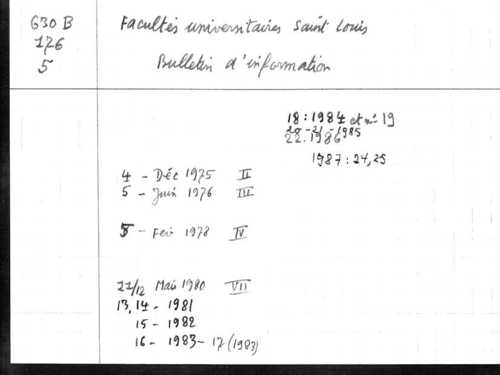 G30 B
176
5
Facultés universitaires Saint Louis
Bulletin d'information
18 : 1984 et n° 19
1985
22. 1986
1987 : 24, 25
4 - Déc 1975 II
5 - Juin 1976 III
5 - Fev 1978 IV
11/12 Mai 1980 VII
13, 14 - 1981
15 - 1982
16 - 1983 - 17 (1983)